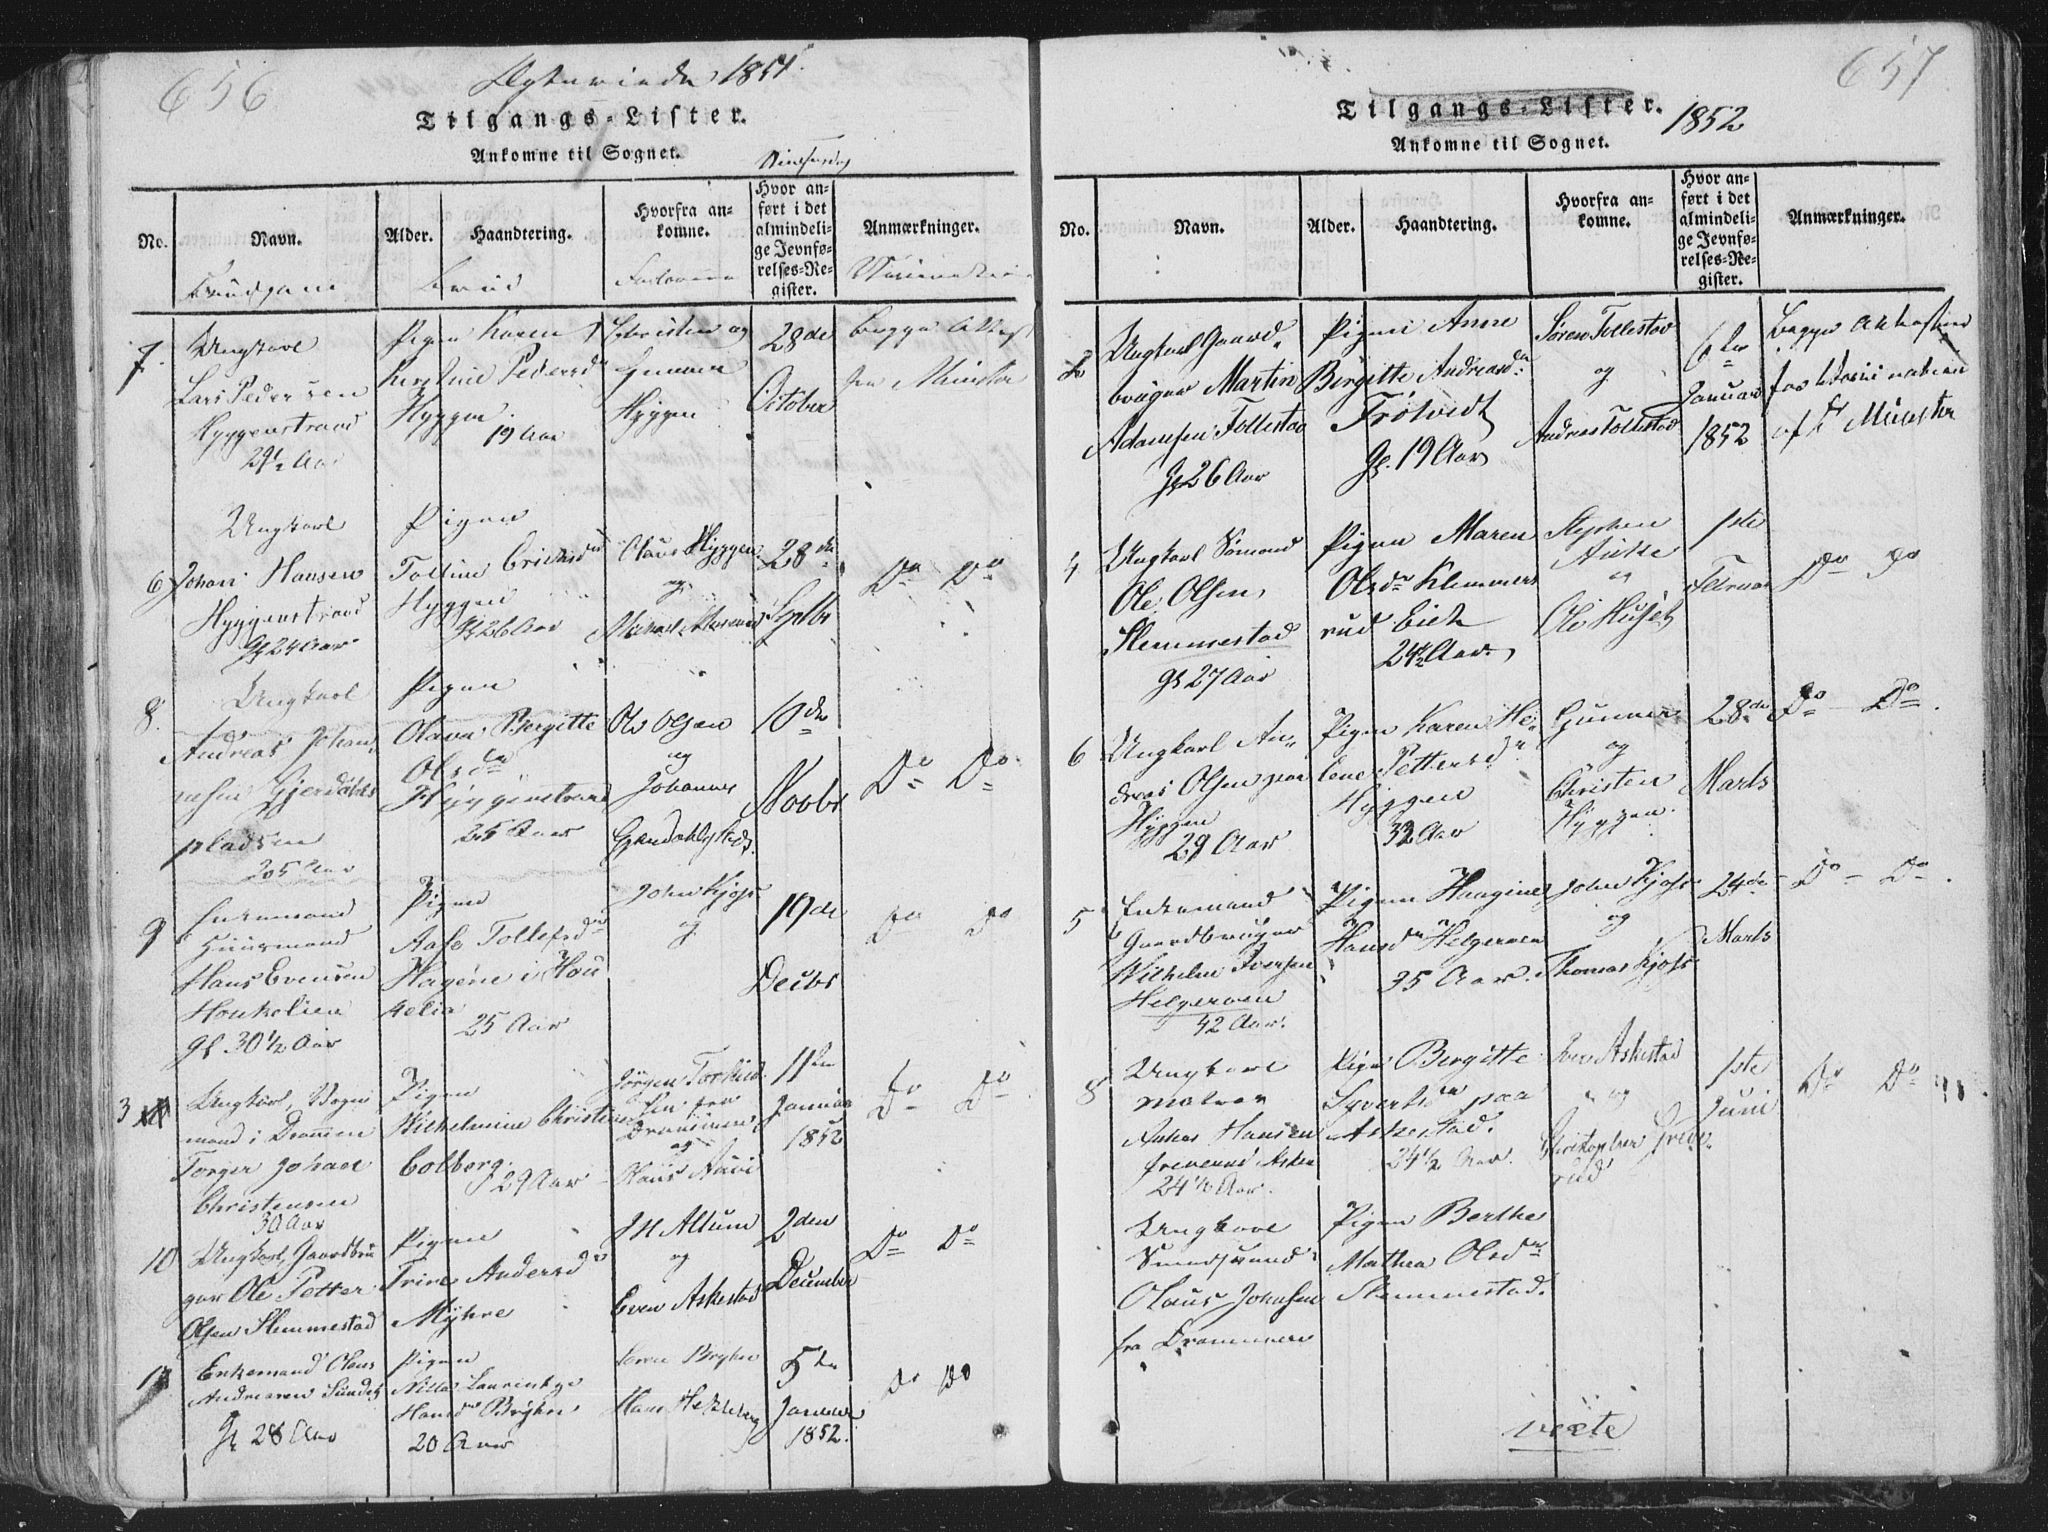 656
Ægteviede 1851.
Tilgangs-Lister.
Ankomne til Sognet.
No.
Navn.
Alder.
Haandtering.
Hvorfra an-
komne.
Hvor an-
ført i det
almindeli-
ge Jevnfø-
relses-Re-
gister.
Anmærkninger.
Brudgom
Brud
Forlovere
7
Ungkarl
Lars Pedersen
Hyggenstrand
29½ Aar
Pigen Karen
Kirstine Pedersd
Hyggen
19 Aar
Christen og
Gunner
Hyggen
28de
October
begge Attest
fra Münster
6
Ungkarl
Johan Hansen
Hyggenstrand
gl 24 Aar
Pigen
Tolline Erichsd
Hyggen
gl 26 Aar
Olaus Hyggen
og
28de
Septbr
Do Do
8
Ungkarl
Andreas Johan-
nesen Gjerdahls
pladsen
25 Aar
Pigen
Olava Bergitte
Olsdr
Hyggenstrand
25 Aar
Ole Olsen
og
Johannes
10de
Novbr
Do Do
9
Enkemand
Huusmand
Hans Evensen
Houkelien
gl. 30½ Aar
Pigen
Aase Tollefsdr
Hagene i Hou
kelia
25 Aar
John Kjøs
og
19de
Decbr
Do Do
3
Ungkarl,
mand i Drammen
Torger Johan
Christensen
30 Aar
Pigen
Wilhelmine Christine
Colberg
29 Aar
Jørgen
sen fra
Drammen
og
11te
Januar
1852
Do Do
10
Ungkarl, Gaardbru
ger Ole Petter
Olsen Slemmestad
Pigen
Trine Andersdr
Myhre
og
Even Askestad
2den
December
Do Do
Enkemand Olaus
Andreasen
gl 28 Aar
Pigen
Hansdr
20 Aar
5te
Januar
1852.
Do Do
657
Tilgangs-Lister. 1852
Ankomne til Sognet.
No.
Navn.
Alder.
Haandtering.
Hvorfra an-
komne.
Hvor an-
ført i det
almindeli-
ge Jevnfø-
relses-Re-
gister.
Anmærkninger.
2
Ungkarl Gaard-
bruger Martin
Adamsen Tollestad
gl 26 Aar
Pigen Anne
Bergitte Andreasdr
Trøtvedt
gl. 19 Aar
Søren Tollestad
og
Andreas Tollestad
6te
Januar
1852
Begge Attester
for Vaccinationen
af Hr Münster
4
Ungkarl Sømand
Ole Olsen
Slemmestad
gl 27 Aar
Pigen Maren
Olsdr Klemmets
rud Eich
24½ Aar.
Stephen
og
Ole Huset
1ste
Februar
Do Do
6
Ungkarl An-
dreas Olsen paa
Hyggen
29 Aar
Pigen Karen He-
lene Pettersdr
Hyggen
32 Aar
Gunner
og
Christen
Hyggen.
28de
Marts
Do Do
5
Enkemand
Gaardbruger
Wilhelm Iversen
Helgeroen
42 Aar.
Pigen Haagine
Hansdr Helgeroen
35 Aar.
John Kjøs
og
Thomas Kjøs
24de
Marts
Do Do
8
Ungkarl
Matros
Hansen
24½ Aar.
Pigen Bergitte
Syvertsdr paa
Askestad.
24½ Aar.
Iver Askestad
og
1ste
Juni
Do Do
Ungkarl
Olaus Johnsen
fra Drammen
Pigen Berthe
Mathea Olsdr
Slemmestad.
verte